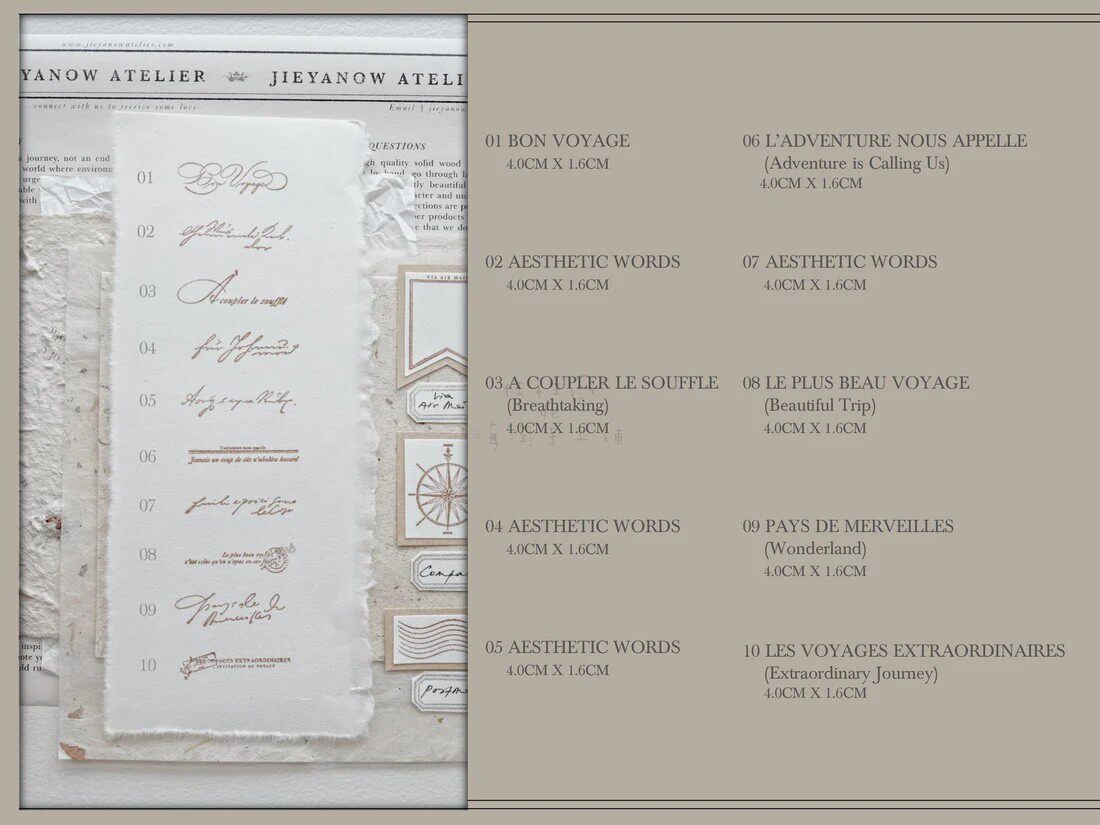 www.jieyanowatelier.com
YANOW ATELIER JIEYANOW ATELI
connect with us to receive some love
Email | jieyanow
QUESTIONS
a journey, not an end
world where environm
urge
able
with
gh quality solid wood
by hand, go through
tly beautiful
acter and un
ections are pe
per products
e that we do
01 Bon Voyage
02
03 A coupler le souffle
04 für
05
06
Jamais un coup de dés n'abolira hasard
07
08 Le plus beau
c'est celui qu'on n'a pas encore
09 Pays de
Merveilles
10 LES VOYAGES EXTRAORDINAIRES
INVITATION AU VOYAGE
VIA AIR MAIL
Via
Air Mai
Compa
Postm
inspi
ote yo
old ru
01 BON VOYAGE
4.0CM X 1.6CM
02 AESTHETIC WORDS
4.0CM X 1.6CM
03 A COUPLER LE SOUFFLE
(Breathtaking)
4.0CM X 1.6CM
04 AESTHETIC WORDS
4.0CM X 1.6CM
05 AESTHETIC WORDS
4.0CM X 1.6CM
06 L'ADVENTURE NOUS APPELLE
(Adventure is Calling Us)
4.0CM X 1.6CM
07 AESTHETIC WORDS
4.0CM X 1.6CM
08 LE PLUS BEAU VOYAGE
(Beautiful Trip)
4.0CM X 1.6CM
09 PAYS DE MERVEILLES
(Wonderland)
4.0CM X 1.6CM
10 LES VOYAGES EXTRAORDINAIRES
(Extraordinary Journey)
4.0CM X 1.6CM